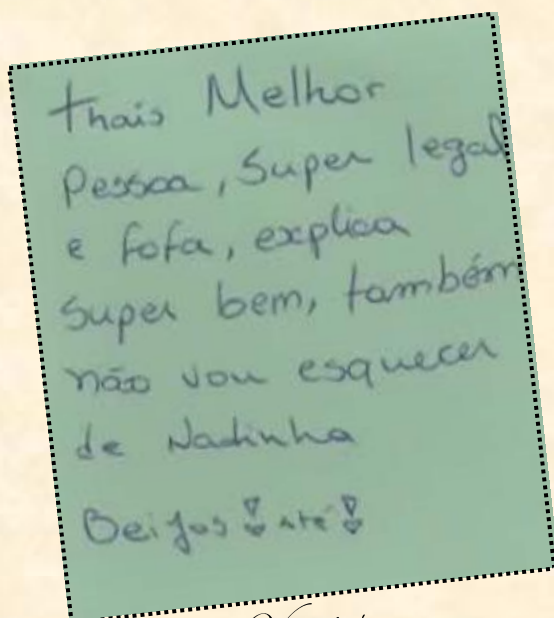 Thais Melhor
Pessoa, Super legal
e fofa, explica
Super bem, também
não vou esquecer
de Nadinha
Beijos! até!